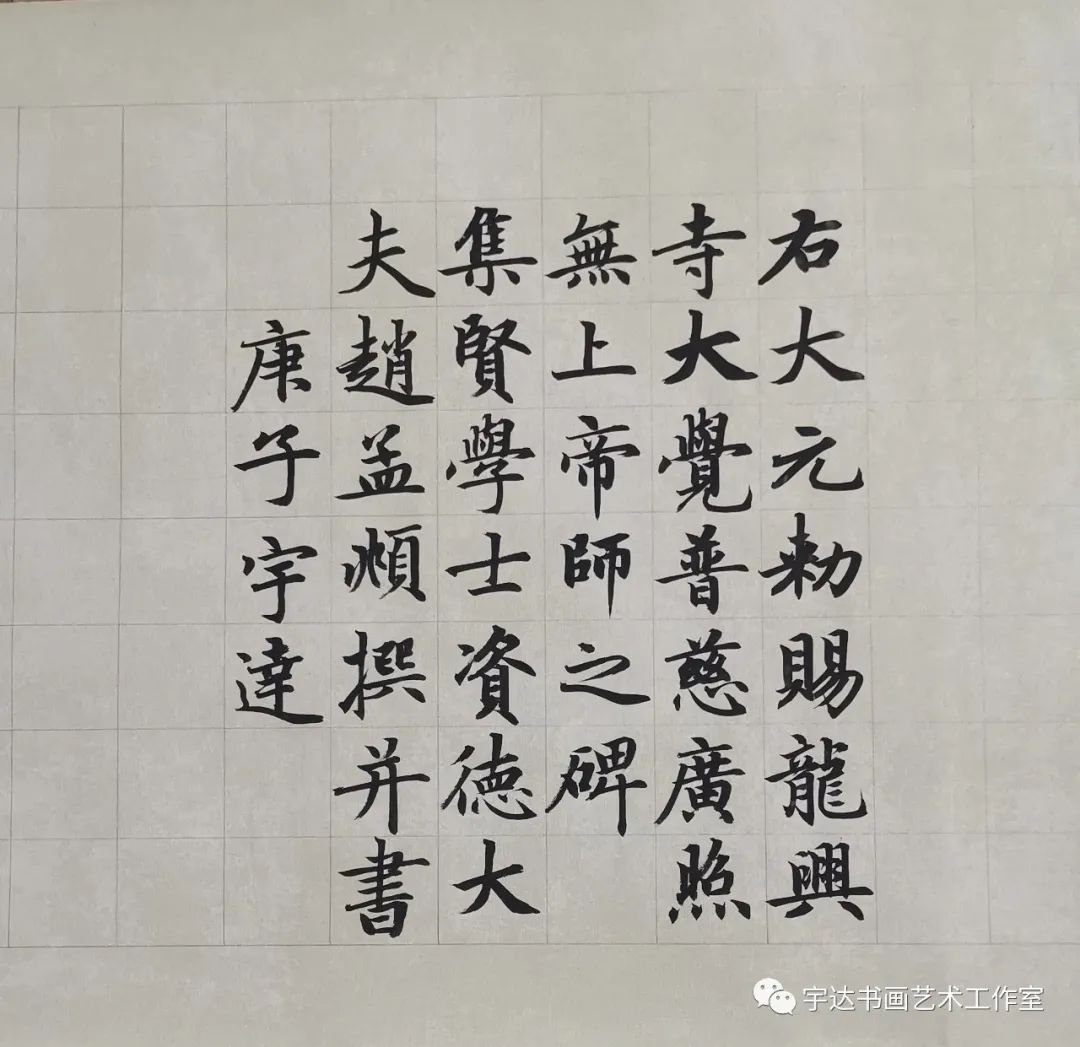 右大元勅賜龍興
寺大覺普慈廣照
無上帝師之碑
集賢學士資德大
夫趙孟頫撰并書
庚子宇達
宇达书画艺术工作室